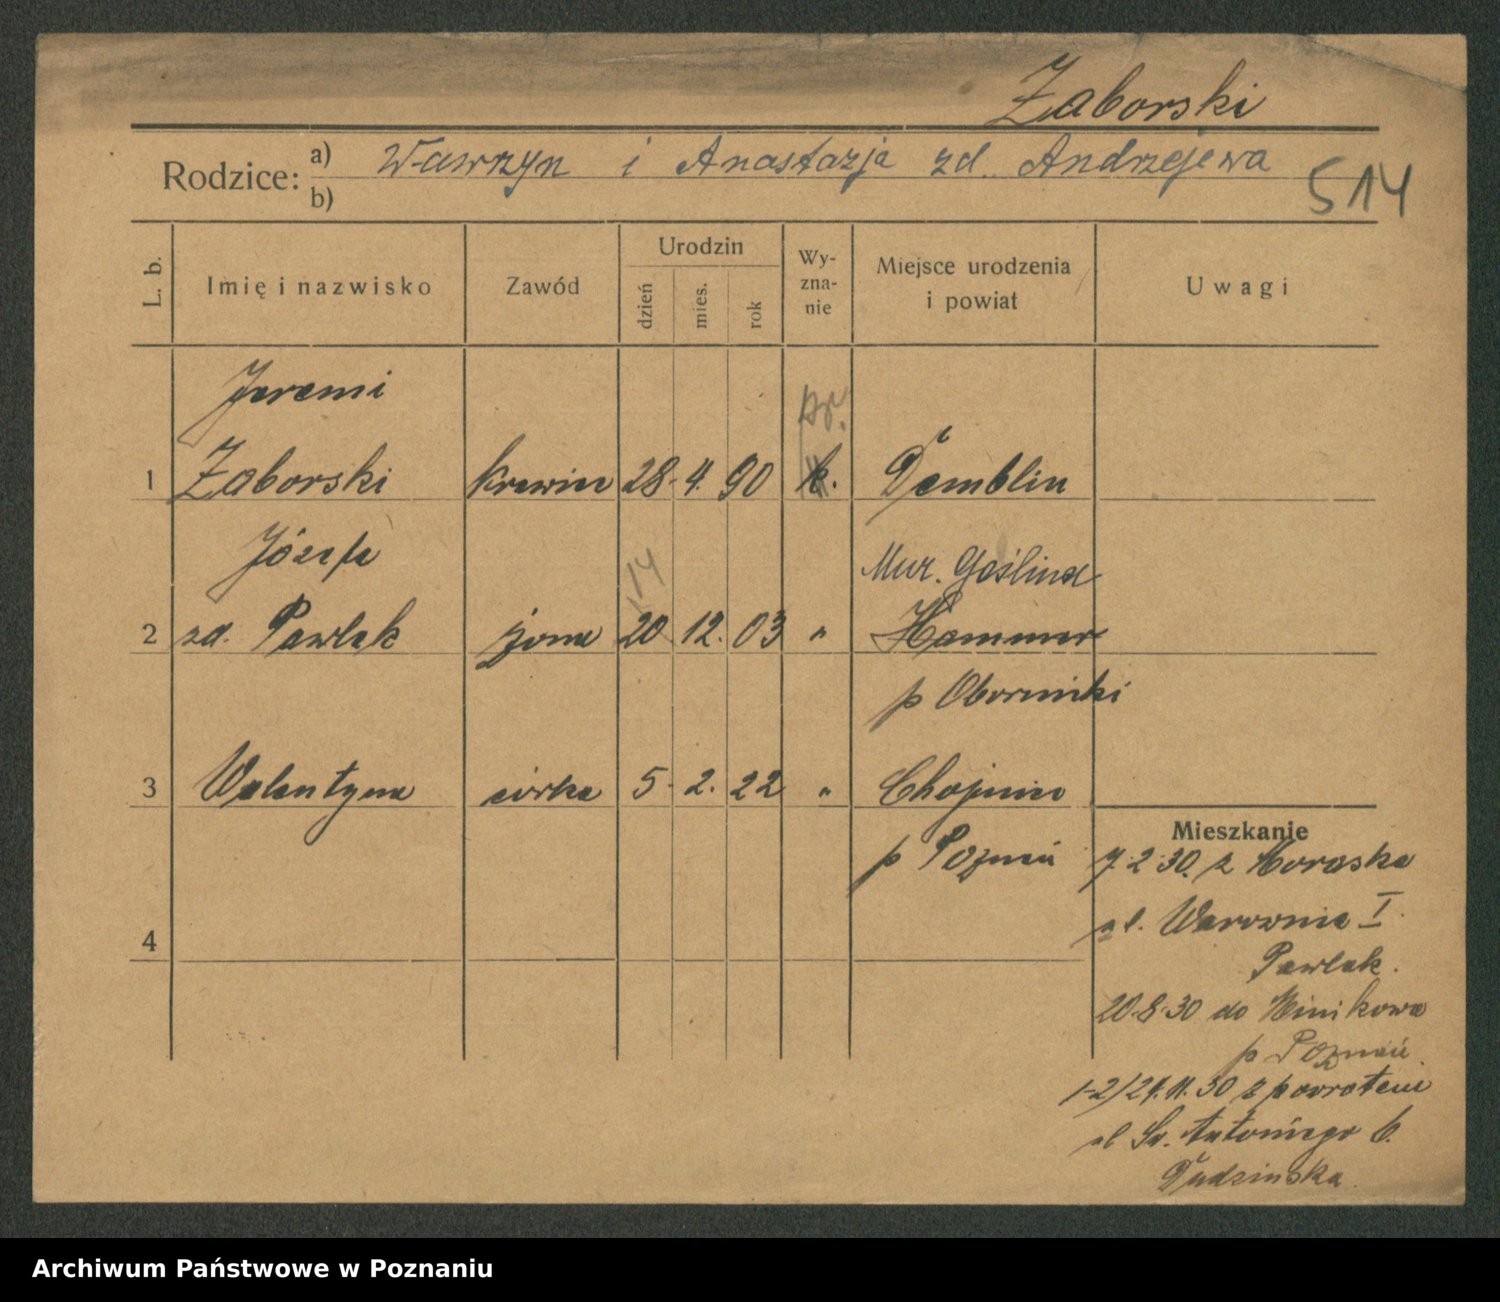 Zaborski
Rodzice: a) Wawrzyn i Anastazja zd. Andrzejewa
b)
514
L. b. Imię i nazwisko Zawód Urodzin dzień mies. rok Wy-zna-nie Miejsce urodzenia i powiat Uwagi
Jeremi
pr.
1 Zaborski krawiec 28. 4. 90 k. Demblin
Józefa
14
Mur. Goślina
2 zd. Pawlak żona 20 12. 03 " Hammer
p Oborniki
3 Walentyna córka 5. 2. 22 " Chojnice
p Poznań
Mieszkanie
7.2.30. z Moraska
ul. Warownia I.
4
Pawlak.
20.8.30 do Minikowa
p Poznań.
1-2/24.11.30 z powrotem
ul Św. Antoniego 6.
Dudzinska.
Archiwum Państwowe w Poznaniu